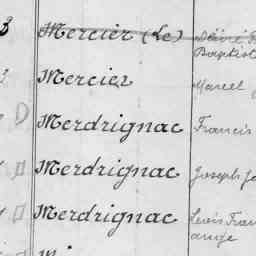 Mercier (Le)
Baptist
Mercier Marcel
Merdrignac Francis
Merdrignac Joseph
Merdrignac Louis Fran
ange